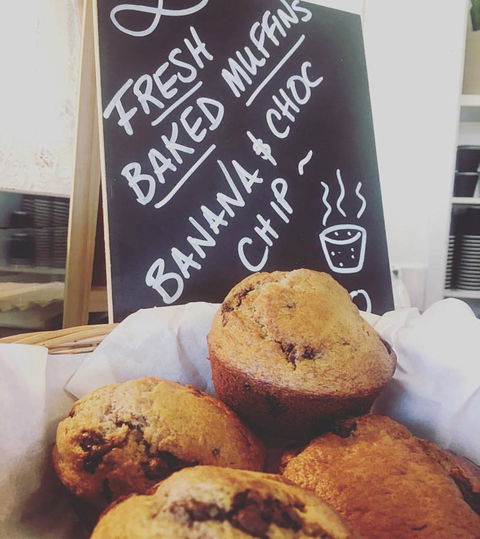 FRESH
BAKED MUFFINS
BANANA & CHOC
CHIP ~